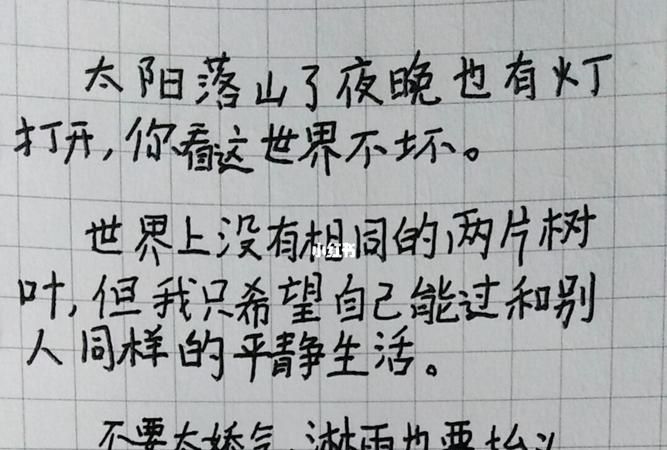 太阳落山了夜晚也有灯
打开,你看这世界不坏。
世界上没有相同的两片树
小红书
叶,但我只希望自己能过和别
人同样的平静生活。
不要太娇气,淋雨也要抬头